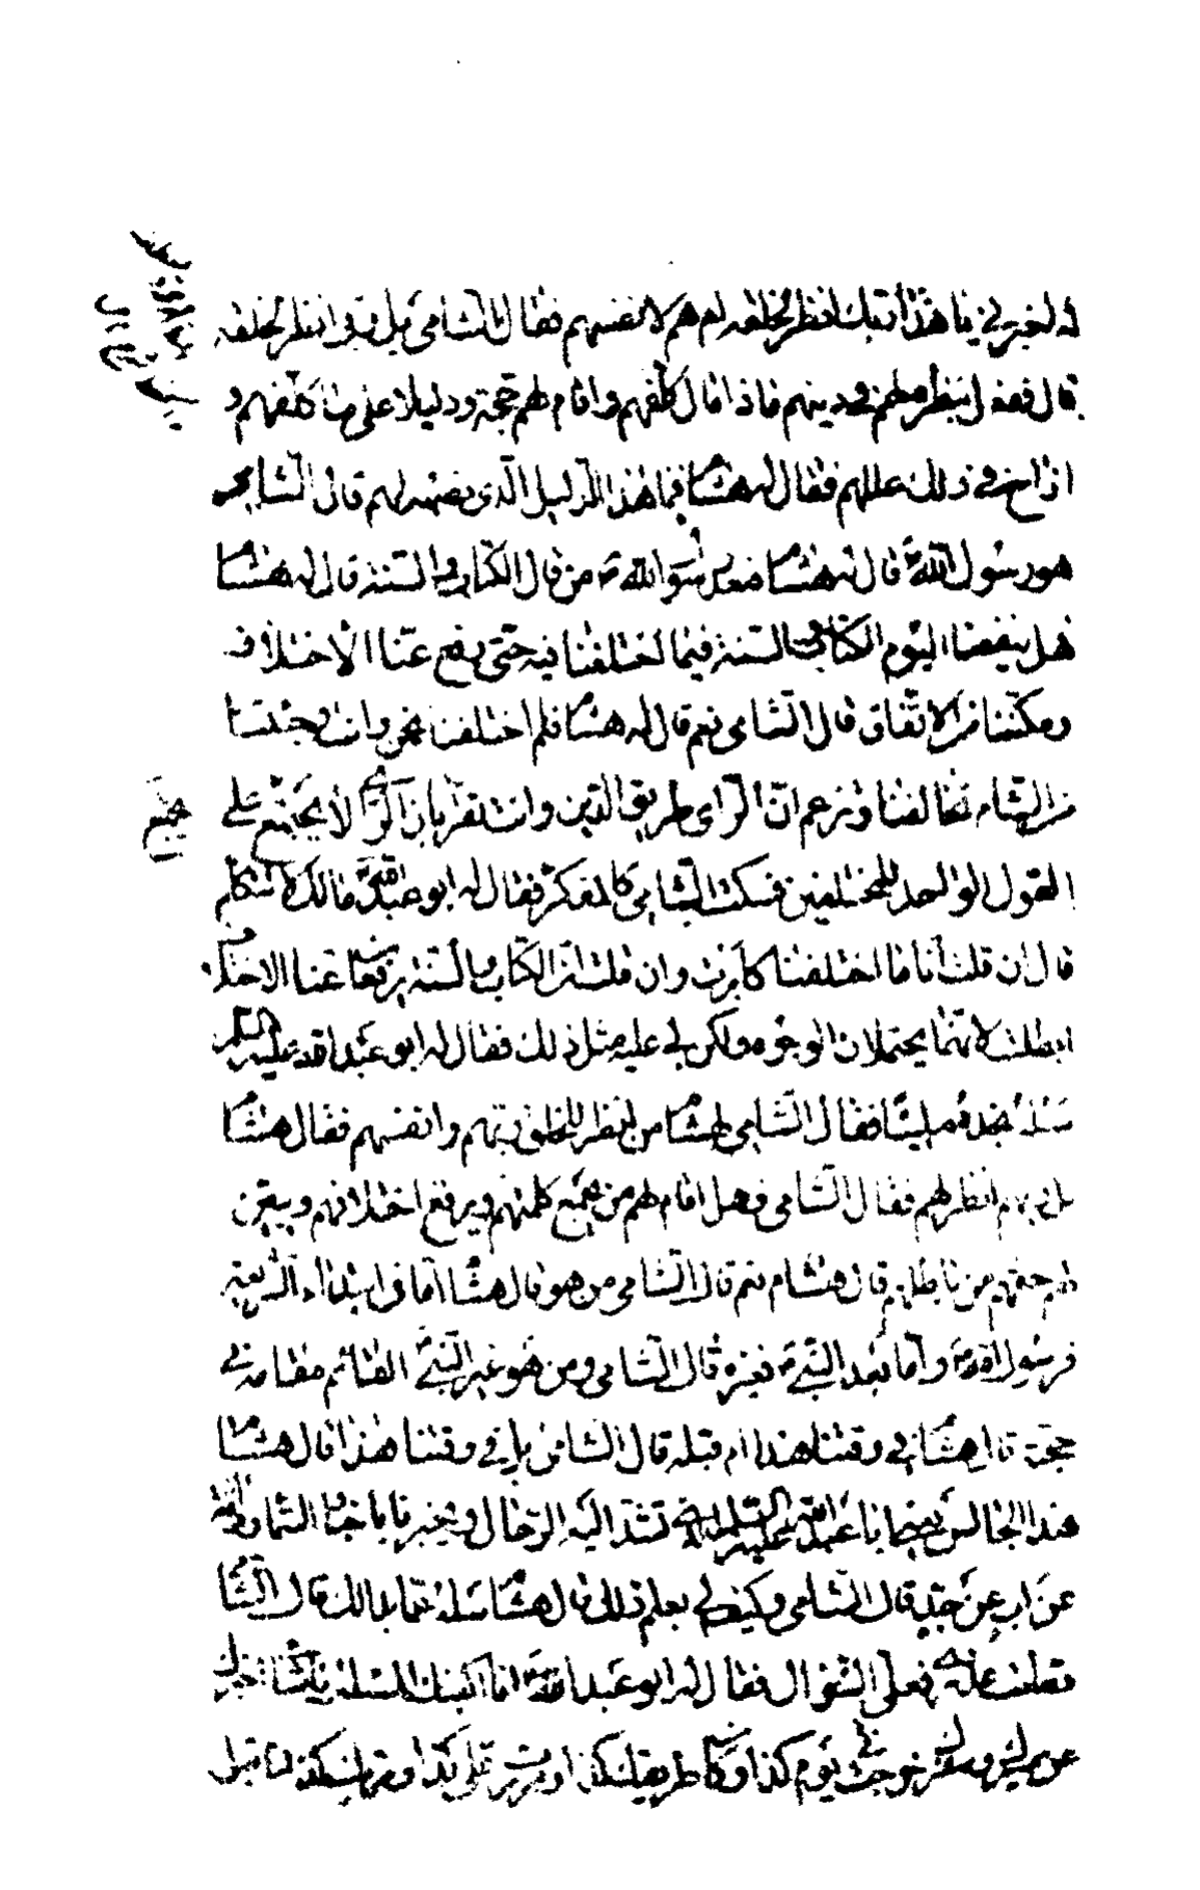 له اخبرني يا هذا أربك انظر لخلقه ام هم لانفسهم فقال الشامي بل ربي انظر لخلقه
قال ففعل بنظره لهم في دينهم ماذا قال كلفهم واقام لهم حجة ودليلا على ما كلفهم و
ازاح في ذلك عللهم فقال له هشام فما هذا الدليل الذي نصبه لهم قال الشامي
هو رسول الله ص قال له هشام فبعد رسول الله ص من قال الكتاب والسنة قال له هشام
فهل ينفعنا اليوم الكتاب والسنة فيما اختلفنا فيه حتى يرفع عنا الاختلاف
ومكننا من الاتفاق قال الشامي نعم قال له هشام فلم اختلفنا نحن وانت وجئتنا
من الشام تخالفنا وتزعم ان الراي طريق الدين وانت تقر بان الراي لا يجتمع على
القول الواحد للمختلفين فسكت الشامي كالمفكر فقال له ابو عبد الله ع مالك لا تتكلم
قال ان قلت انا ما اختلفنا كابرت وان قلت ان الكتاب والسنة يرفعان عنا الاختلاف
ابطلت لانهما يحتملان الوجوه ولكن لي عليه مثل ذلك فقال له ابو عبد الله عليه السلم
سله تجده مليا فقال الشامي لهشام من انظر للخلق ربهم او انفسهم فقال هشام
بل ربهم انظر لهم فقال الشامي فهل اقام لهم من يجمع كلمتهم ويرفع اختلافهم ويبين
لهم حقهم من باطلهم قال هشام نعم قال الشامي من هو قال هشام اما في ابتداء الشريعة
فرسول الله ص واما بعد النبي ص فغيره قال الشامي ومن هو غير النبي ص القائم مقامه في
حجته قال هشام في وقتنا هذا ام قبله قال الشامي بل في وقتنا هذا قال هشام
هذا الجالس يعني ابا عبد الله عليه السلم الذي تشد اليه الرحال ويخبرنا باخبار السماء وراثة
عن اب عن جد قال الشامي وكيف لي بعلم ذلك قال هشام سله عما بدا لك قال الشامي
قطعت عذري فعلي السؤال فقال له ابو عبد الله ع انا اكفيك المسئلة يا شامي اخبرك
عن مسيرك وسفرك خرجت في يوم كذا وكان طريقك كذا ومررت على كذا ومر بك كذا فاقبل
يجتمع